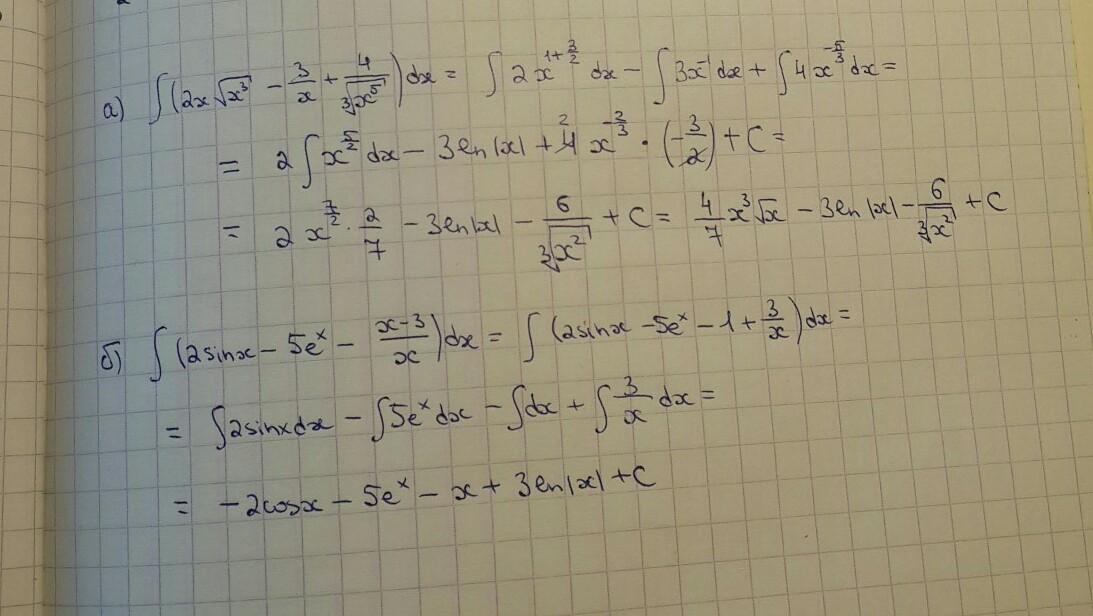 а) ∫(2x√x³ − 3/x + 4/∛x⁵)dx = ∫2x^(1+3/2) dx − ∫3x⁻¹dx + ∫4x^(−5/3)dx =
= 2∫x^(5/2) dx − 3ln|x| + 4² x^(−2/3) · (−3/2) + C =
= 2x^(7/2) · 2/7 − 3ln|x| − 6/∛x² + C = 4/7 x³√x − 3ln|x| − 6/∛x² + C
б) ∫(2sinx − 5eˣ − (x−3)/x)dx = ∫(2sinx − 5eˣ − 1 + 3/x)dx =
= ∫2sinxdx − ∫5eˣdx − ∫dx + ∫3/x dx =
= −2cosx − 5eˣ − x + 3ln|x| + C